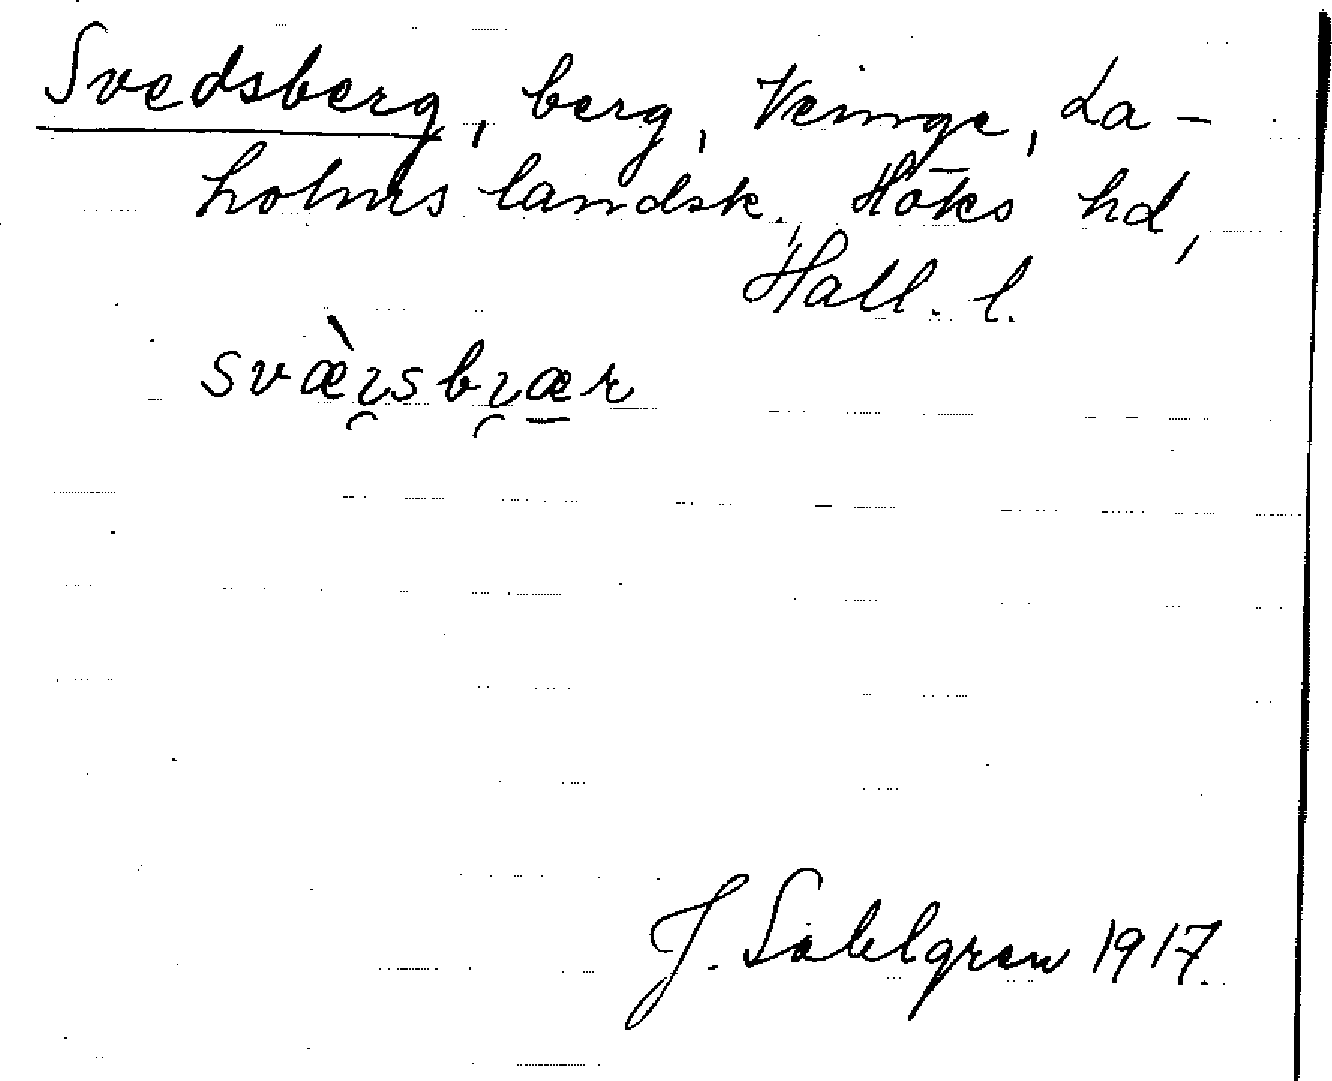 Svedsberg, berg, Veinge, La-
holms landsk., Höks hd,
Hall. l.
svæ̀ɿ̯sbɿ̯æ̱r
J. Sahlgren 1917.